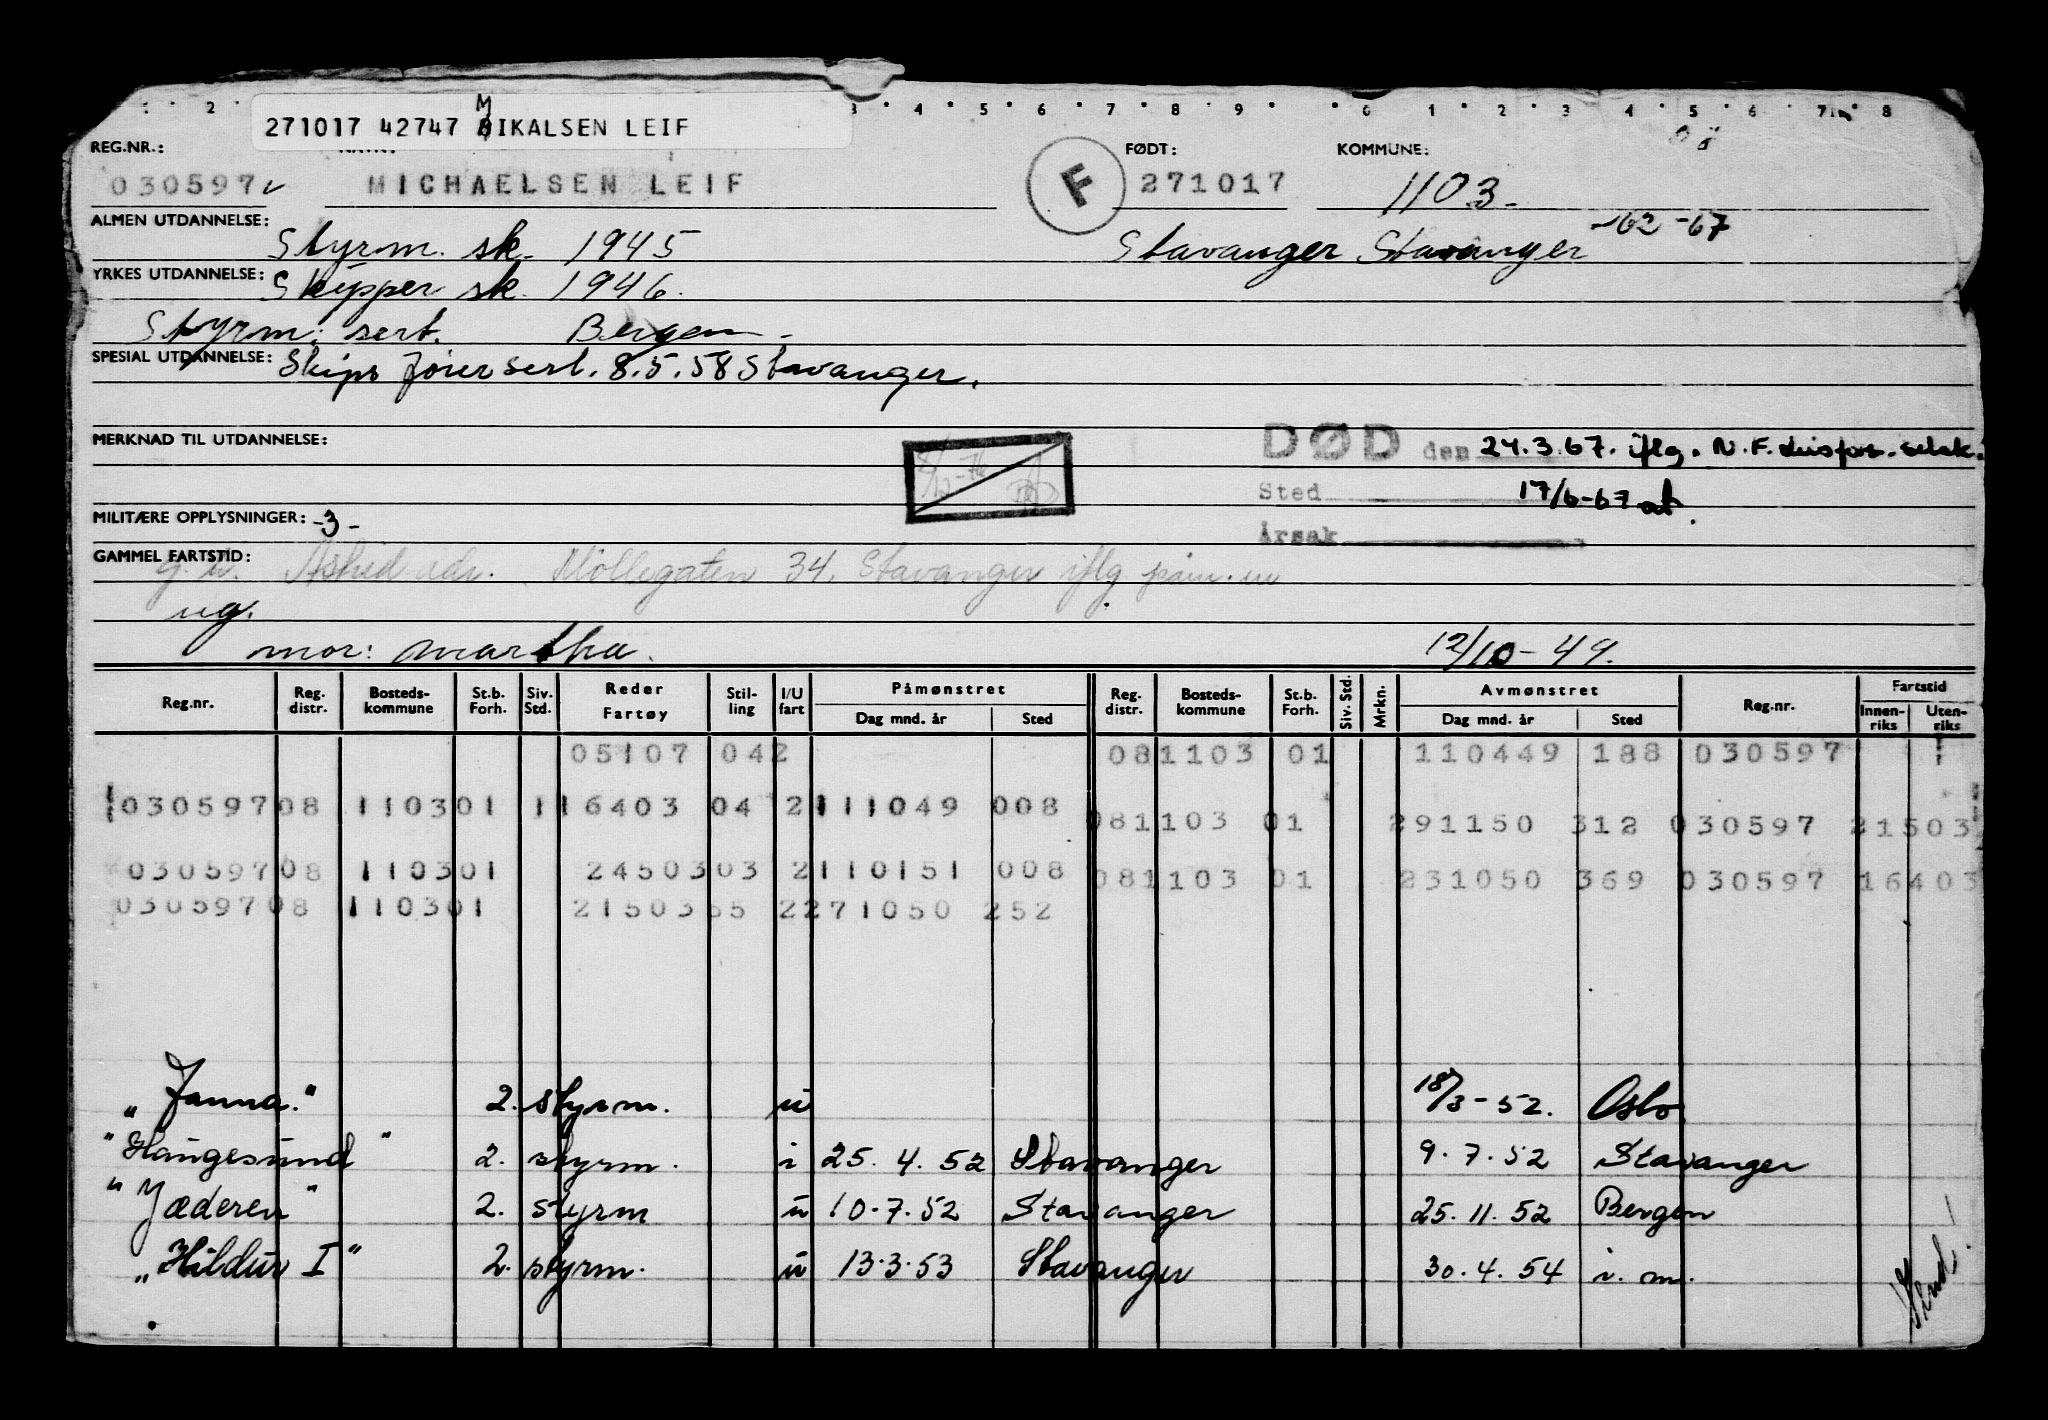 1 2 3 4 5 6 7 8 9 0 1 2 3 4 5 6 7 8
271017 42747 MIKALSEN LEIF
REG.NR.: FØDT: KOMMUNE:
030597 MICHAELSEN LEIF F 271017 1103-
ALMEN UTDANNELSE: Styrm. sk. 1945 Stavanger Stavanger -62-67
YRKES UTDANNELSE: Skipper sk. 1946.
Styrm. sert. Bergen-
SPESIAL UTDANNELSE: Skipsførersert. 8.5.58 Stavanger.
MERKNAD TIL UTDANNELSE: DØD den 24.3.67. iflg. N.F.
Sted 17/6-67
MILITÆRE OPPLYSNINGER: -3- Årsak
GAMMEL FARTSTID: Möllegaten 34, Stavanger iflg
ug.
mor: Martha. 12/10-49.
Reg.nr. Reg. distr. Bosteds-kommune St.b. Forh. Siv. Std. Reder Fartøy Stil-ling I/U fart Påmønstret Dag mnd. år Sted Reg. distr. Bosteds-kommune St.b. Forh. Siv. Std. Mrkn. Avmønstret Dag mnd. år Sted Reg.nr. Fartstid Innen-riks Uten-riks
05107 042 081103 01 110449 188 030597
030597 08 1103 01 1 16403 04 2 111049 008 081103 01 291150 312 030597 21503
030597 08 1103 01 24503 03 2 110151 008 081103 01 231050 369 030597 16403
030597 08 1103 01 21503 55 2 271050 252
"Janna." 2. styrm. u 18/3-52. Oslo
"Haugesund" 2. styrm. i 25.4.52 Stavanger 9.7.52 Stavanger
"Jæderen" 2. styrm u 10.7.52 Stavanger 25.11.52 Bergen
"Hildur I" 2. styrm. u 13.3.53 Stavanger 30.4.54 i. m.